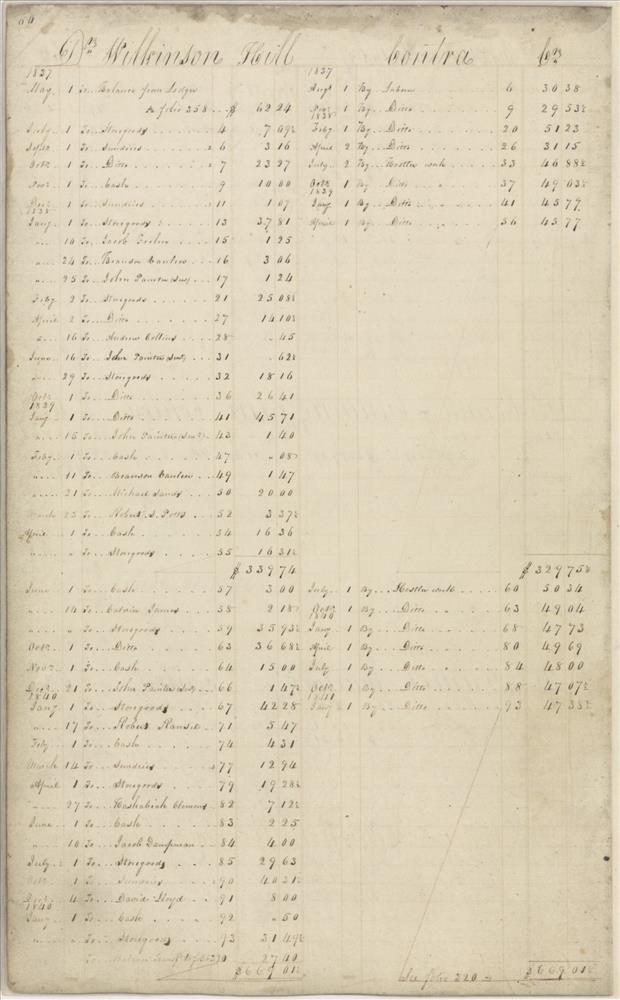 60
Drs Wilkinson Hill Contra Crs
1837 1837
May 1 To Balance from Ledger Augt 1 By Labour 6 30 38
A folio 258 $ 62 24 Novr 1 By Ditto 9 29 53½
1838
July 1 To Storegoods 4 7 09½ Feby 1 By Ditto 20 51 23
Septr 1 To Sundries 6 3 16 April 2 By Ditto 26 31 15
Octr 1 To Ditto 7 23 27 July 2 By Hostler work 33 46 88½
Novr 1 To Cash 9 10 00 Octr 1 By Ditto 37 49 03½
1839
Decr 1 To Sundries 11 1 07 Jany 1 By Ditto 41 45 77
1838
Jany 1 To Storegoods 13 37 81 April 1 By Ditto 56 45 77
" 10 To Jacob 15 1 25
" 24 To Branson Cantlow 16 3 06
" 25 To John Painter (Sur) 17 1 24
Feby 2 To Storegoods 21 25 08½
April 2 To Ditto 27 14 10½
" 16 To Andrew Collins 28 " 45
June 16 To John Painter (Sur) 31 " 62½
" 29 To Storegoods 32 18 16
Octr 1 To Ditto 36 26 41
1839
Jany 1 To Ditto 41 45 71
" 15 To John Painter (Sur) 43 1 40
Feby 1 To Cash 47 " 08½
" 11 To Branson Cantlow 49 1 47
" 21 To Michael Sands 50 20 00
March 25 To Robert S. Potts 52 3 37½
April 1 To Cash 54 16 36
" " To Storegoods 55 16 31½
$ 339 74 $ 329 75½
June 1 To Cash 57 3 00 July 1 By Hostler work 60 50 34
" 14 To Calvin James 58 2 18½ Octr 1 By Ditto 63 49 04
1840
" " To Storegoods 59 35 93½ Jany 1 By Ditto 68 47 73
Octr 1 To Ditto 63 36 68½ April 1 By Ditto 80 49 69
Novr 1 To Cash 64 15 00 July 1 By Ditto 84 48 00
Decr 21 To John Painter (Sur) 66 1 47½ Octr 1 By Ditto 88 47 07½
1840 1841
Jany 1 To Storegoods 67 42 28 Jany 1 By Ditto 93 47 38½
" 17 To Robert 71 5 47
Feby 1 To Cash 74 4 31
March 14 To Sundries 77 12 94
April 1 To Storegoods 79 19 28½
" 27 To Hashabiah Clemens 82 7 12½
June 1 To Cash 83 2 25
" 10 To Jacob Dampman 84 4 00
July 1 To Storegoods 85 29 63
Octr 1 To Sundries 90 40 21½
Decr 4 To David Lloyd 91 8 00
1840
Jany 1 To Cash 92 " 50
" " To Storegoods 93 31 49½
To 220 27 40
$669 01½ See folio 220 $669 01½